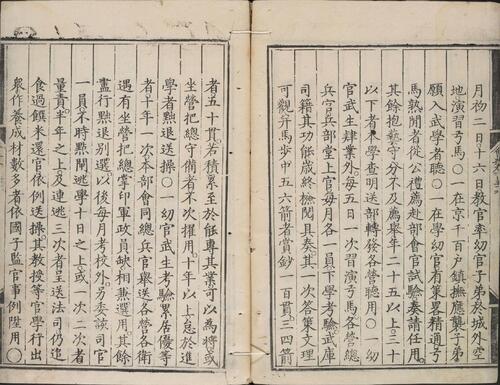 月物二日十六日教官率幼官子弟於城外空
地演習弓馬○一在京千百戶鎮撫應襲子弟
願入武學者聽○一在學幼官有策畧精通弓
馬熟閒者從公禮薦赴部會官試驗奏請任用
其餘抱藝守分不及薦舉年二十五以上三十
以下者本學查明送部轉發各營聽用○一幼
官武生肄業外每五日一次演習弓馬各營總
兵官兵部堂上官每月各一員下學考驗武庫
司籍其功能歲終檢閱具奏其一次答策文理
可觀并馬步中五六箭者賞鈔一百貫三四箭
者五十貫若積累至於能專其業可以為將或
坐營把總守備者不次擢用十年以上怠於進
學者黜退送操○一幼官武生考驗累居優等
者十年一次本部會同總兵官舉送各營各衛
遇有坐營把總掌印軍政員缺相兼選用其餘
盡行黜退別選以後每月考校外另委該司官
一員不時點閘逃學十日之上者一次二次者
量責半年之上及連逃三次者呈送法司仍追
食過饌米還官依例送操其教授等官學行出
衆作養成材數多者依國子監官事例陞用○